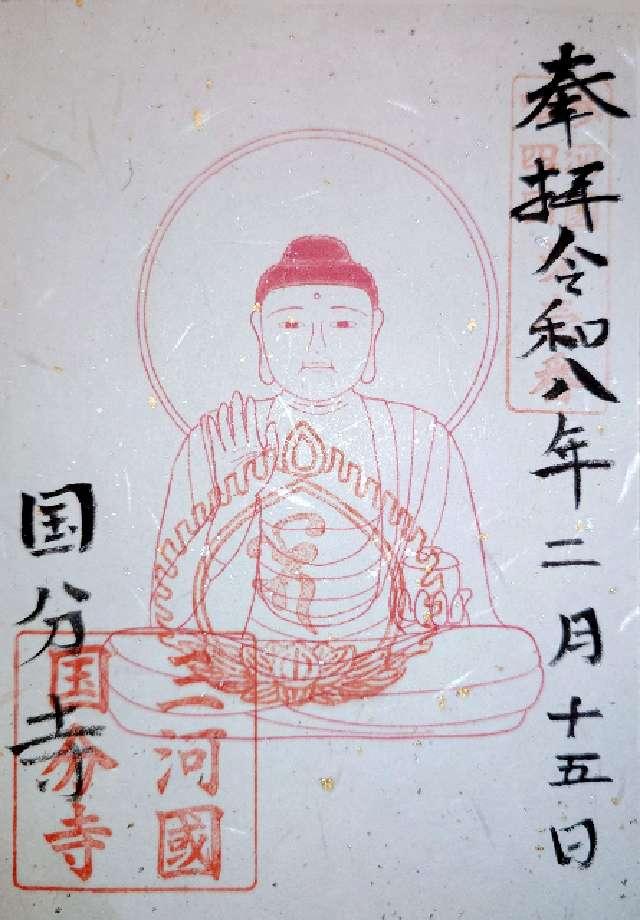 奉拝令和八年二月十五日
国分寺
三河國
国分寺